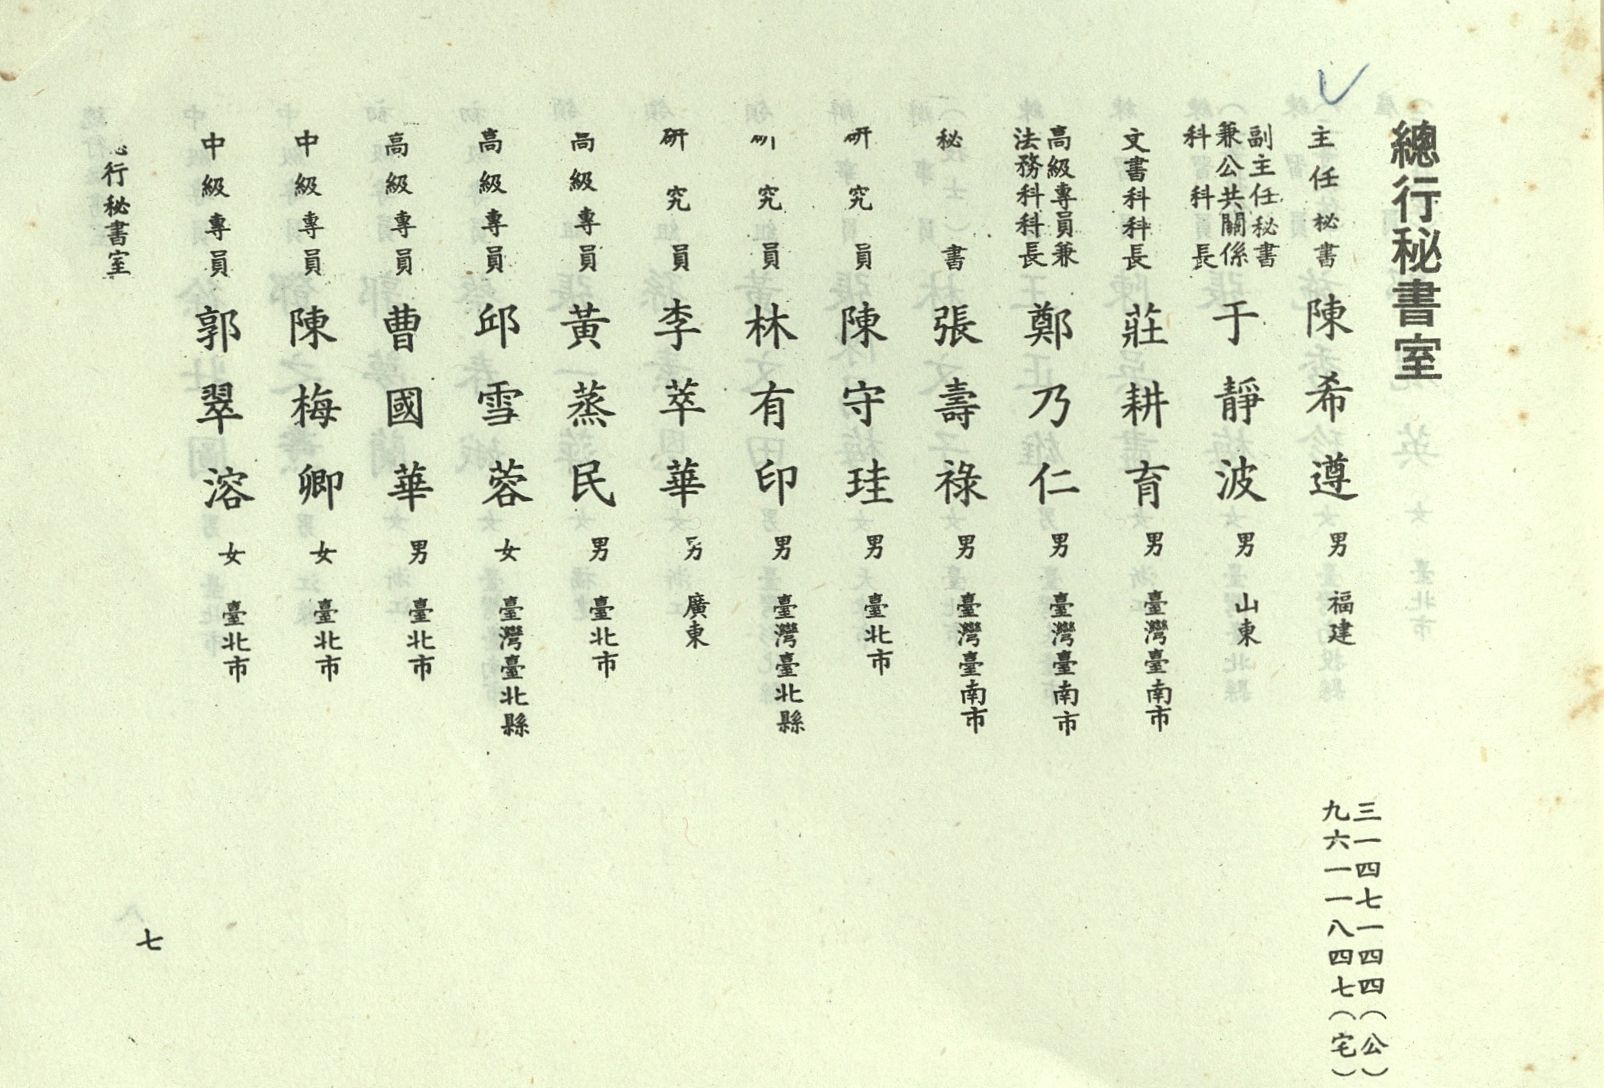 總行秘書室
主任秘書 陳希遵 男 福建 三一四七一四四(公)
九六一一八四七(宅)
副主任秘書兼公共關係科科長 于靜波 男 山東
文書科科長 莊耕育 男 臺灣臺南市
高級專員兼法務科科長 鄭乃仁 男 臺灣臺南市
秘書 張壽祿 男 臺灣臺南市
研究員 陳守珪 男 臺北市
研究員 林有印 男 臺灣臺北縣
研究員 李萃華 男 廣東
高級專員 黃蒸民 男 臺北市
高級專員 邱雪蓉 女 臺灣臺北縣
高級專員 曹國華 男 臺北市
中級專員 陳梅卿 女 臺北市
中級專員 郭翠溶 女 臺北市
總行秘書室
七